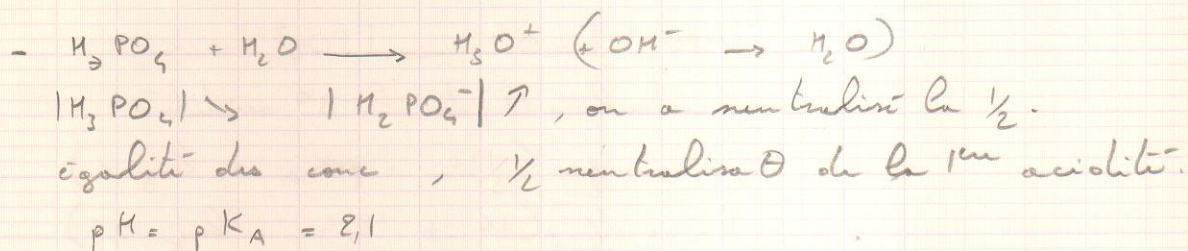 - H₃PO₄ + H₂O ⟶ H₃O⁺ (+ OH⁻ → H₂O)
|H₃PO₄| ↘ |H₂PO₄⁻| ↗, on a neutralisé la 1/2.
égalité des conc, 1/2 neutralisaθ de la 1ère acidité.
pH = pKA = 2,1